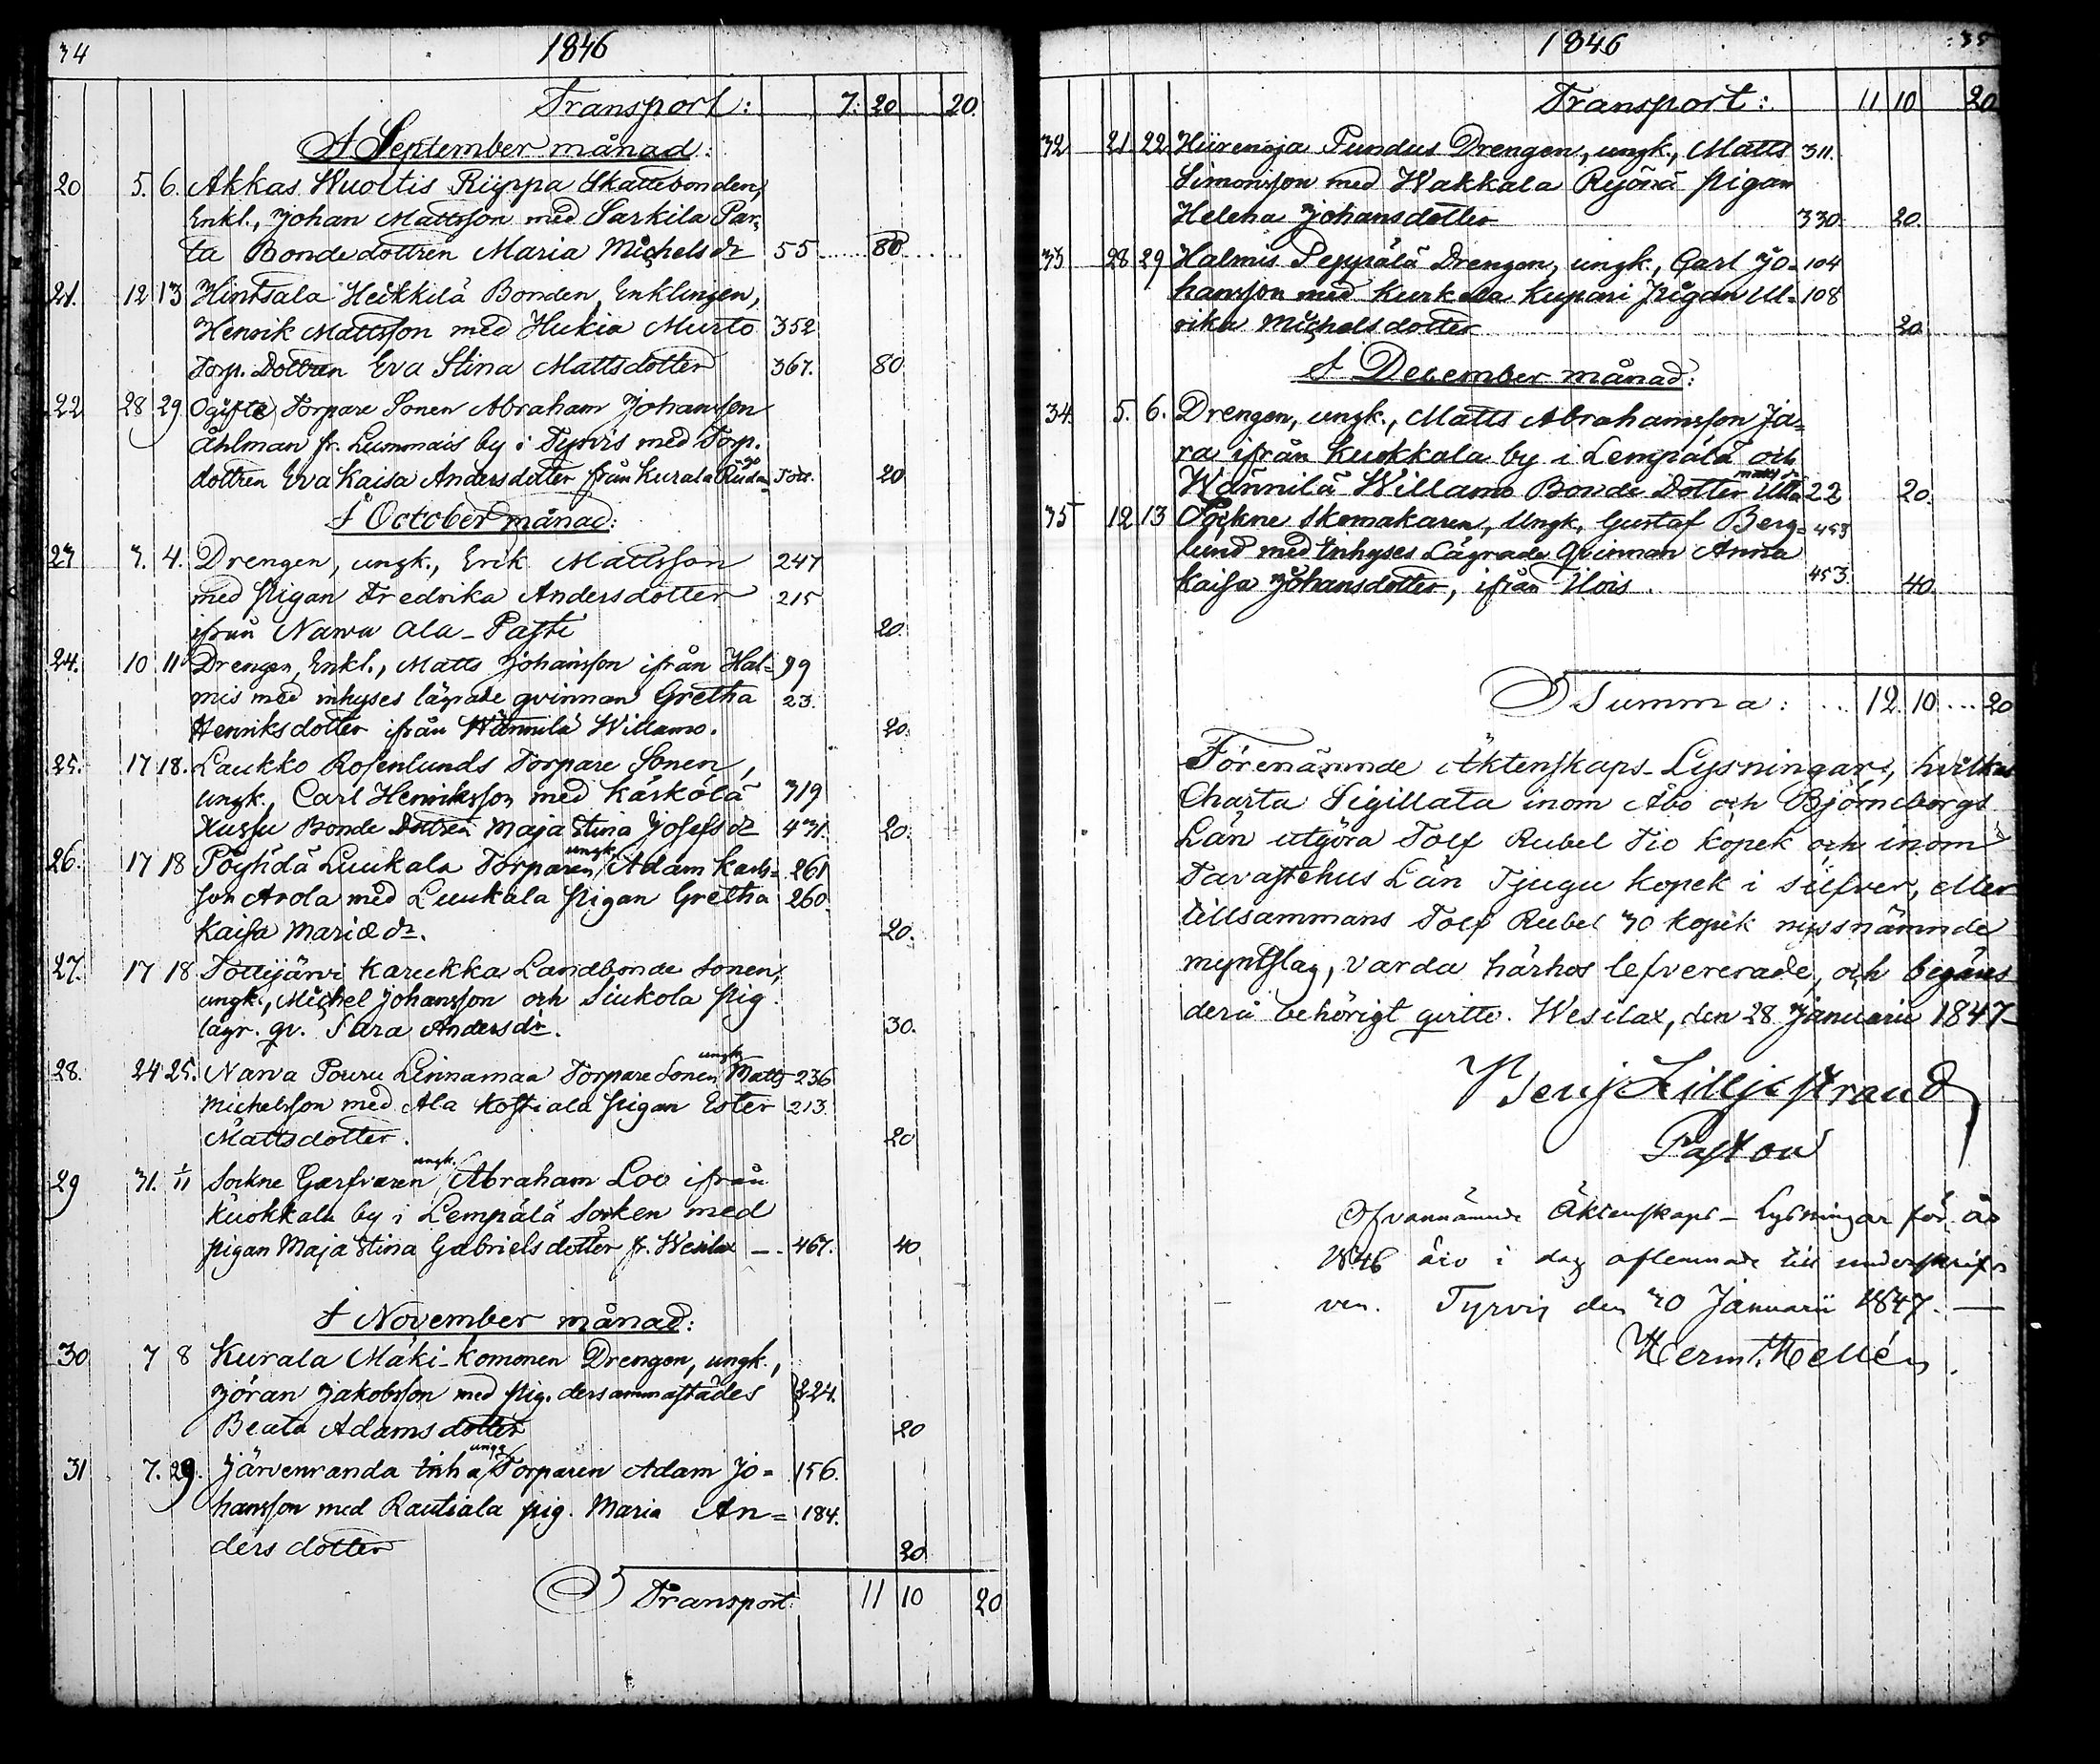 34 1846
Transport: 7. 20 20.
I September månad:
20 5. 6. Akkas Wuoltis Riippa Skattebonden,
Enkl., Johan Mattsson med Sarkila Par-
ta Bondedottren Maria Michelsdr 55 80
21. 12 13 Hintsala Heikkilä Bonden, Enklingen,
Henrik Mattsson med Hukia Murto 352
Torp. Dottren Eva Stina Mattsdotter 367. 80
22 28 29 Ogifte Torpare Sonen Abraham Johansson
Åhlman fr. Lummais by i Tyrvis med Torp.
dottren Eva Kaisa Andersdotter från Kurala 20
I October månad:
23 3. 4. Drengen, ungk., Erik Mattsson 247
med pigan Fredrika Andersdotter 215
ifrån Narva Ala-Pasti 20.
24. 10 11 Drengen, Enkl., Matts Johansson ifrån Hal- 99
mis med inhyses lägrade qvinnan Gretha 23.
Henriksdotter ifrån Wännilä Willamo. 20.
25. 17 18. Laukko Rosenlunds Torpare Sonen,
ungk., Carl Henriksson med Kärkölä 319
Xussu Bonde Dottren Maja Stina Josefsdr 431. 20.
26. 17 18 Pöyhölä Luukala Torparen, ungk. Adam Karls- 261
son Arola med Luukala pigan Gretha 260.
Kaisa Mariædr. 20.
27. 17 18 Tottijärvi Karukka Landbonde Sonen,
ungk., Michel Johansson och Siukola pig.
lägr. qv. Sara Andersdr. 30.
28. 24 25. Narva Pouru Linnamaa Torpare Sonen ungk. Matts 236
Michelsson med Ala Kostiala pigan Ester 213.
Mattsdotter. 20
29 31. 1/11 Sockne Garfvaren ungk. Abraham Loo ifrån
Kuokkala by i Lempälä Socken med
pigan Maja Stina Gabrielsdotter fr. Wesilax 467. 40
I November månad:
30 7 8 Kurala Mäki-Komonen Drengen, ungk.,
Jöran Jakobsson med pig. dersammastädes 224.
Beata Adamsdotter 20
31 7. 29. Järvenranda Torparen Adam Jo= 156.
hansson med Rautiala pig. Maria An= 184.
ders dotter 20
Transport: 11 10 20
1846 35
Transport: 11 10 20
32 21 22 Hiirenoja Pundus Drengen, ungk., Matts 311.
Simonsson med Wakkala Ryönä pigan
Helena Johansdotter 330. 20.
33 28 29 Halmis Peppälä Drengen, ungk., Carl Jo= 104
hansson med Kurkela Kupari Pigan Ul= 108
rika Michelsdotter 20
I December månad:
34. 5. 6. Drengen, ungk., Matts Abrahamsson Ja=
ra ifrån Kuokkala by i Lempälä och
Wännilä Willamo Bonde Dotter Ulla Matts dr 22 20.
35 12 13 Sockne Skomakaren, Ungk. Gustaf Berg= 453
lund med Inhyses Lägrade Qvinnan Anna
Kaisa Johansdotter, ifrån Ilois. 453. 40.
Summa: 12. 10 20
Förenämnde Äktenskaps-Lysningar, hvilkas
Charta Sigillata inom Åbo och Björneborgs
Län utgöra Tolf Rubel Tio kopek och inom
Tavastehus Län Tjugu kopek i silfver, eller
tillsammans Tolf Rubel 30 kopek nyssnämnde
myntslag, varda härhos lefvererade, och begäres
derå behörigt qvitto. Wesilax, den 28 Januarii 1847.
Benj Lilljestrand
Pastor
Ofvannämnde Äktenskaps-Lysningar för år
1846 äro i dag aflemnade till underskrif-
ven. Tyrvis den 30 Januarii 1847.
Herm. Hellén.